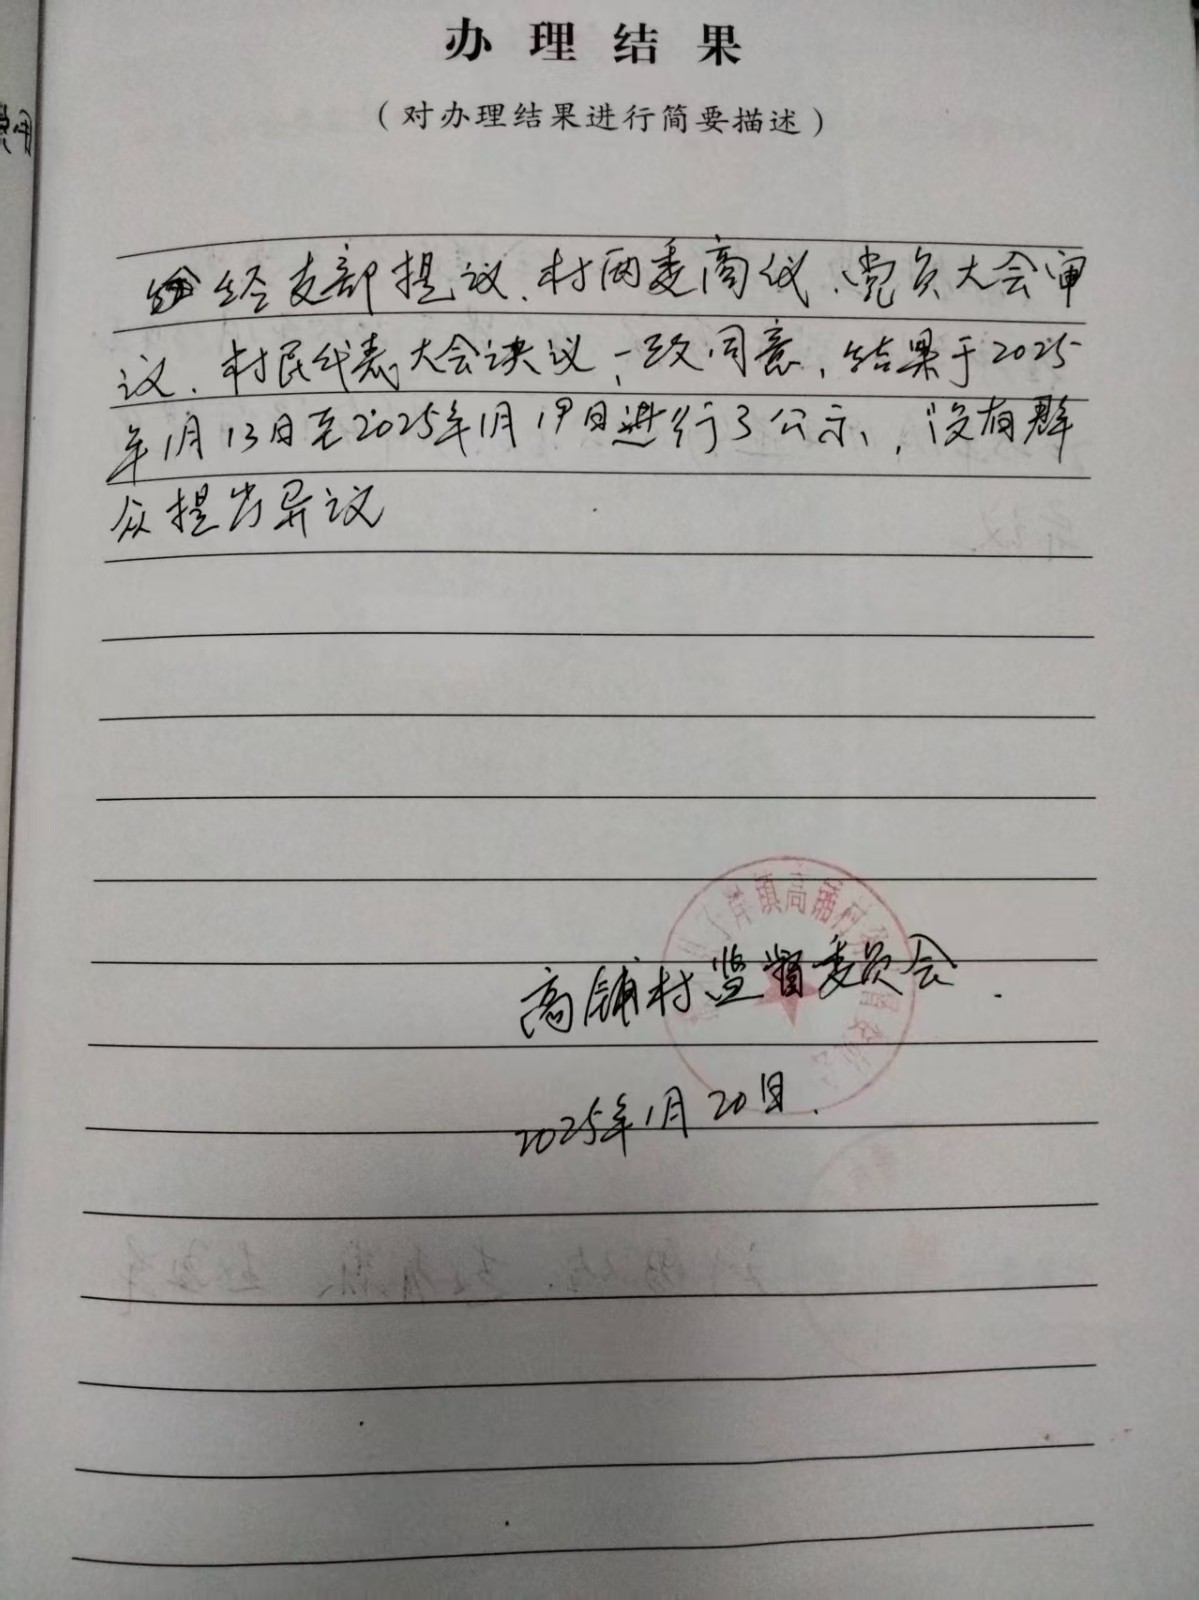 办理结果
（对办理结果进行简要描述）
经支部提议、村两委商议、党员大会审
议、村民代表大会决议，一致同意，结果于2025
年1月13日至2025年1月19日进行了公示，没有群
众提出异议
镇高铺村
高铺村监督委员会
2025年1月20日.